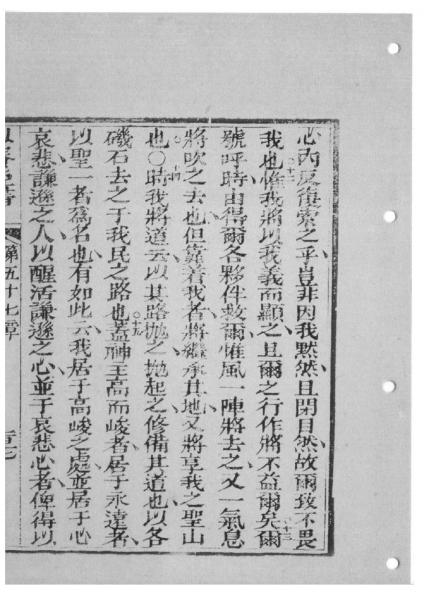 心內反復索之乎豈非因我默然且閉目然故爾致不畏
我也十二惟我將以我義而顯之且爾之行作將不益爾矣十三爾
號呼時由得爾各夥伴救爾惟風一陣將去之又一氣息
將吹之去也但靠着我者將繼承其地又將享我之聖山
也○十四時我將道云以其路拋之拋起之修備其道也以各
礙石去之于我民之路也十五蓋神主高而峻者居于永遠者
以聖一者為名也有如此云我居于高峻之處並居于心
哀悲謙遜之人以醒活謙遜之心並于哀悲心者俾得以
第五十七章